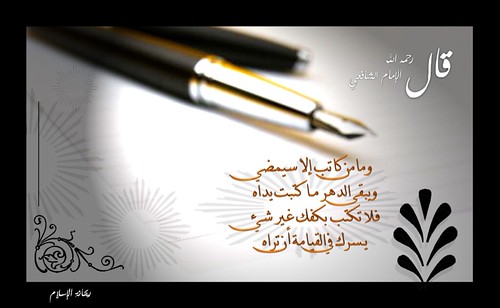 قال
رحمه الله
الإمام الشافعي
ومامن كاتب إلا سيمضي
ويبقى الدهر ما كتبت يداه
فلا تكتب بكفك غير شيء
يسرك في القيامة أن تراه
ريحانة الإسلام